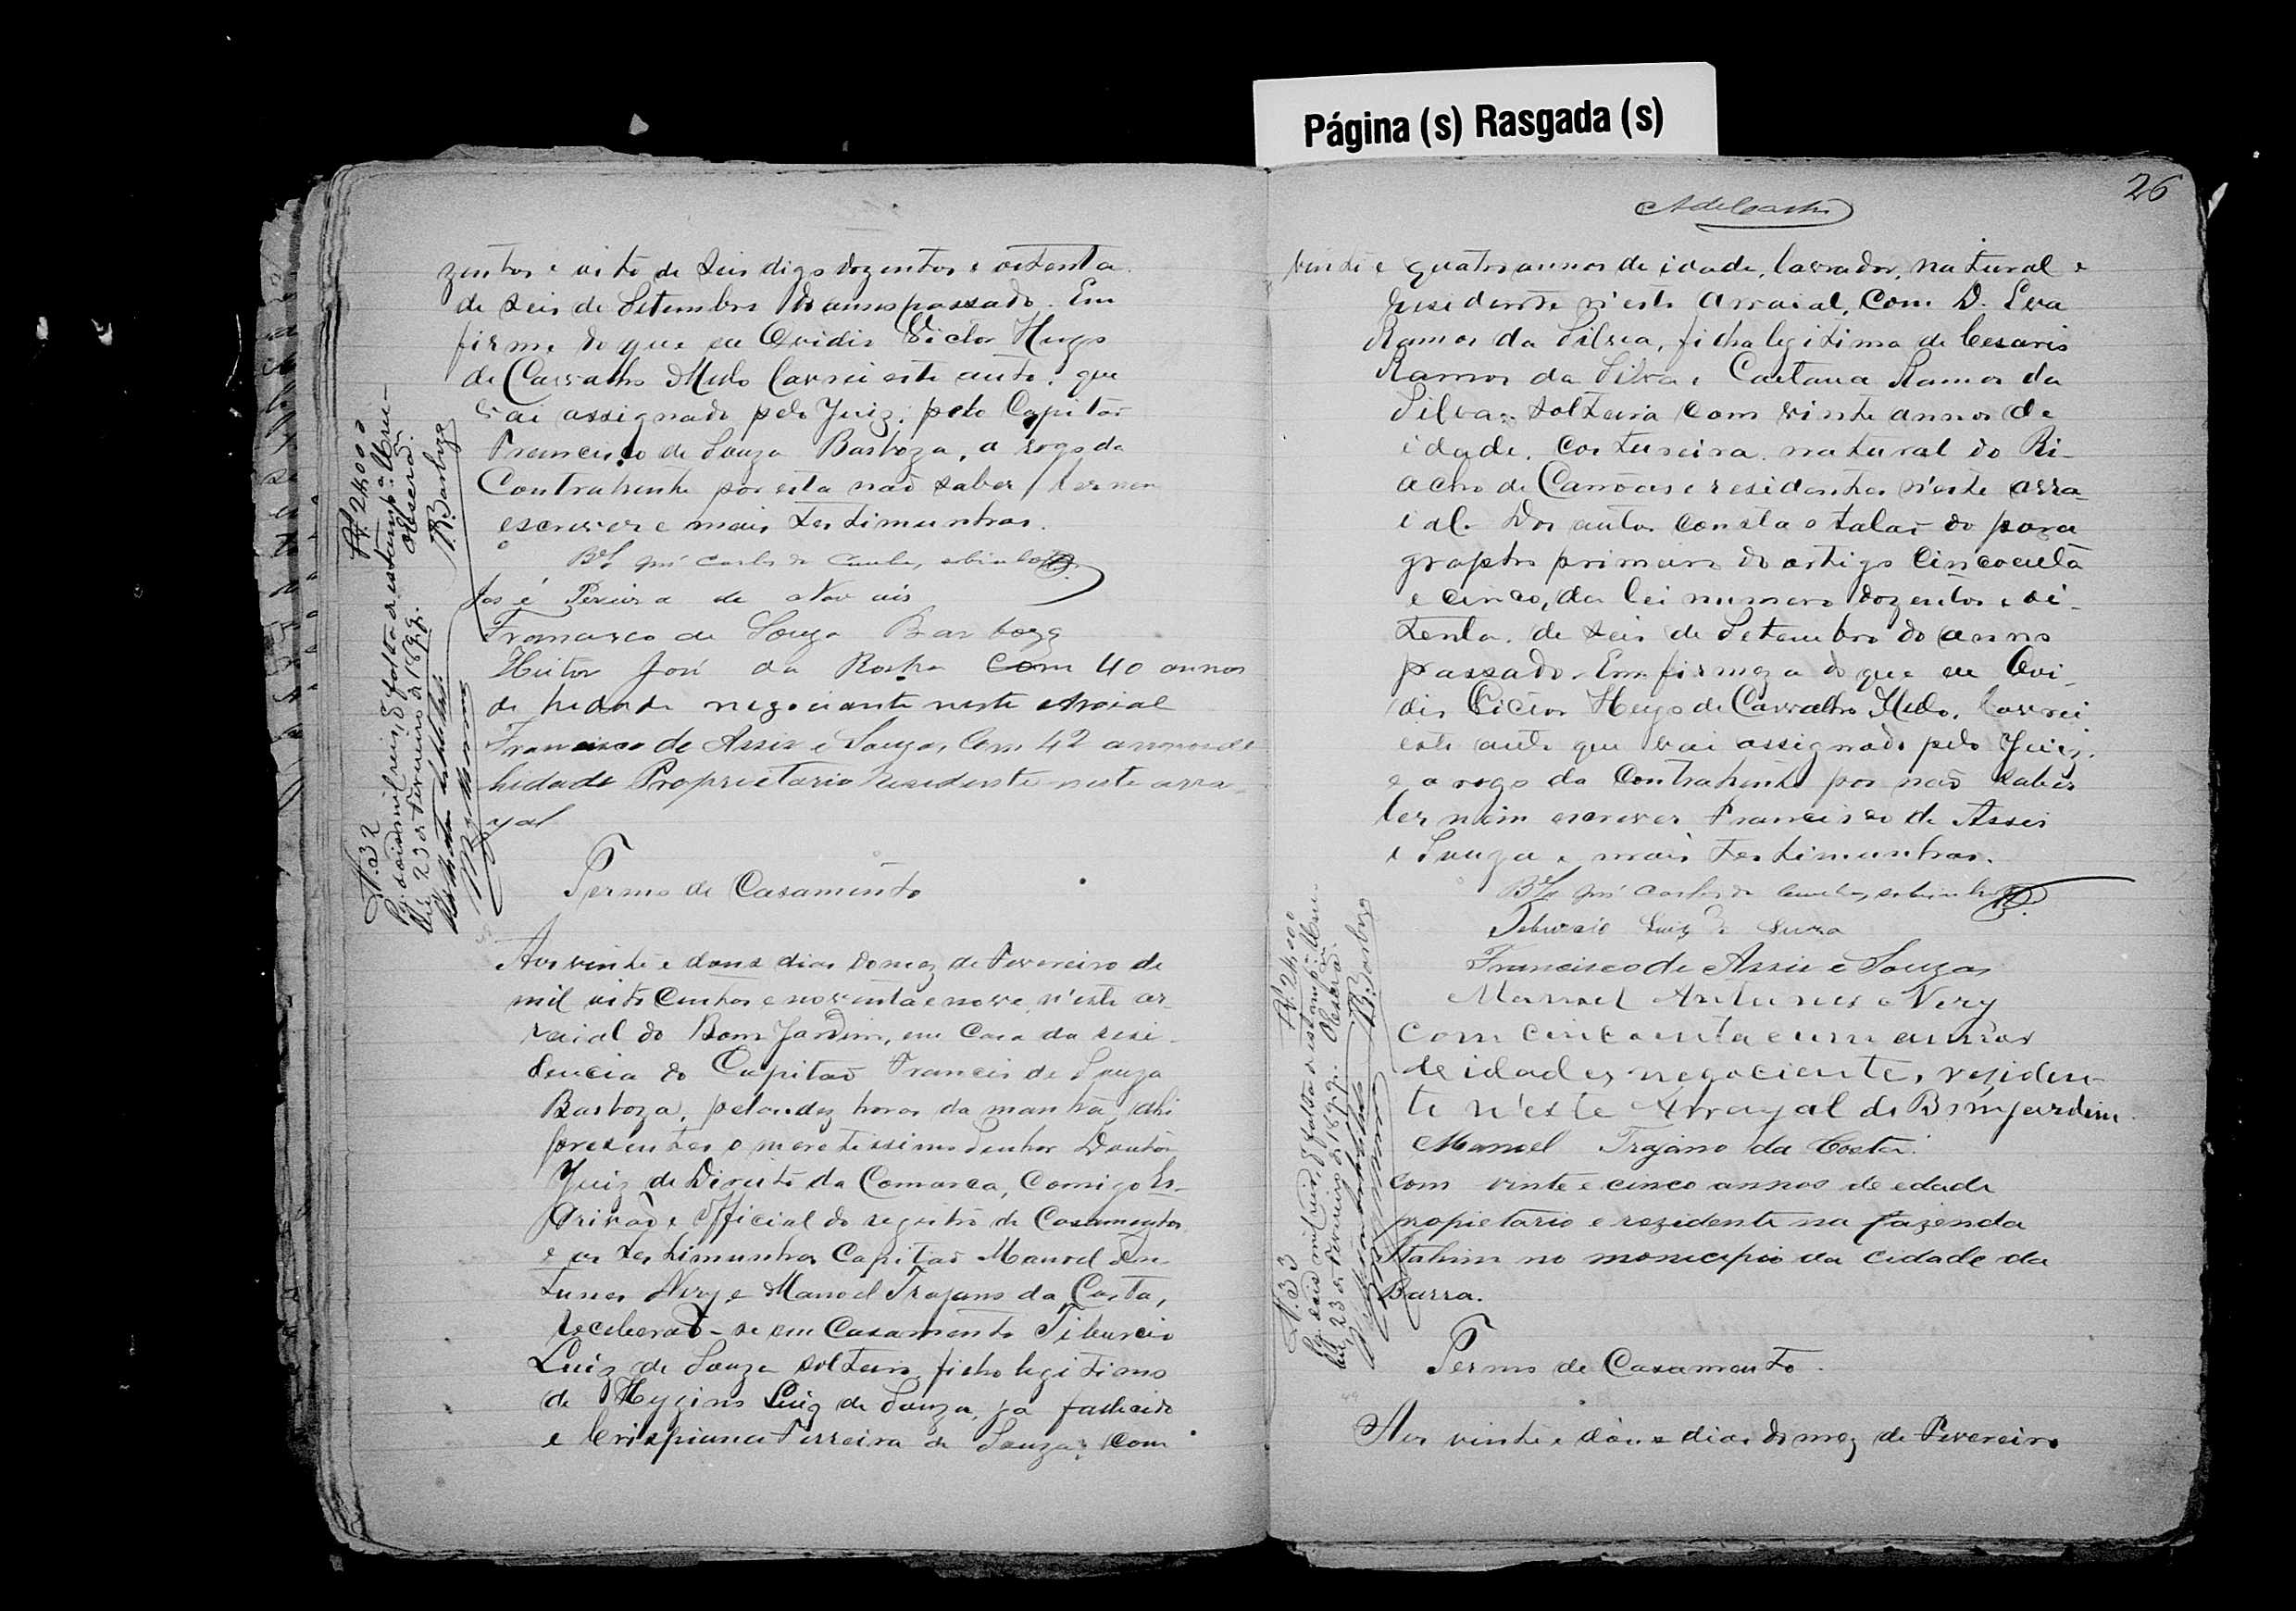 Página (s) Rasgada (s)
zentos e oito de seis digo dozentos e oitenta
de seis de Setembro do anno passado. Em
firme do que eu Ovidio Victor Hugo
de Carvalho Mello lavrei este auto, que
vai assignado pelo Juiz, pelo Capitão
Francisco de Souza Barboza, a rogo da
Contrahente por esta não saber ler nem
escrever e mais testimunhas.
Bel José Carlos da Cunha, sobinho
José Pereira de Novais
Francisco de Souza Barboza
Heitor José da Rocha com 40 annos
de hedade negociante neste arraial
Francisco de Assis e Souza, Com 42 annos de
hedade Proprietario Residente neste arra
yal
N. 32
Rs. 2$000
Pg. dois mil reis, de falta de estampª. Uru-
bú 23 de Fevereiro de 1899.
Barboza
Termo de Casamento
Aos vinte e dous dias do mez de Fevereiro de
mil oito Centos e noventa e nove, n'este ar-
raial do Bom Jardim, em Casa da resi-
dencia do Capitão Francis de Souza
Barboza, pelas dez horas da manhã, ahi
presentes o meretissimo Senhor Doutor
Juiz de Direito da Comarca, Comigo Es-
crivão e Official do registro de Casamentos
e as testimunhas Capitão Manoel An-
tunes Nery e Manoel Trajano da Costa,
receberão-se em Casamento Tiburcio
Luiz de Souza solteiro, filho legitimo
de Hygino Luiz de Souza, ja fallecido
e Crispiana Ferreira de Souza; com
26
vinte e quatro annos de idade, lavrador, natural e
residente n'este arraial, Com D. Eva
Ramos da Silva, filha legitima de Cesario
Ramos da Silva e Caetana Ramos da
Silva, solteira com vinte annos de
idade, costureira, natural do Ri-
acho de Canôas e residentes n'este arra-
ial. Dos autos consta o talão do para
grapho primeiro do artigo Cincoenta
e cinco, da lei numero dozentos e oi-
tenta, de seis de Setembro do anno
passado. Em firmeza do que eu Ovi-
dio Victor Hugo de Carvalho Mello, lavrei
este auto que vai assignado pelo Juiz,
e a rogo da Contrahente por não saber
ler nem escrever Francisco de Assis
e Souza e mais testimunhas.
Bel José Carlos da Cunha, sobinho
Tiburcio Luiz de Souza
Francisco de Assis e Souza
Manoel Antunes Nery
com cincoenta e um annos
de idade, negociente, residen-
te n'este Arrayal do Bomjardim.
Manoel Trajano da Costa.
Com vinte e cinco annos de edade
propietario e rezidente na fazenda
Itahim no monicipio da cidade da
Barra.
N. 33
Rs. 2$000
Pg. dois mil reis, de falta de estampª. Uru-
bú 23 de Fevereiro de 1899.
Barboza
Termo de Casamento.
Aos vinte e dous dias do mez de Fevereiro